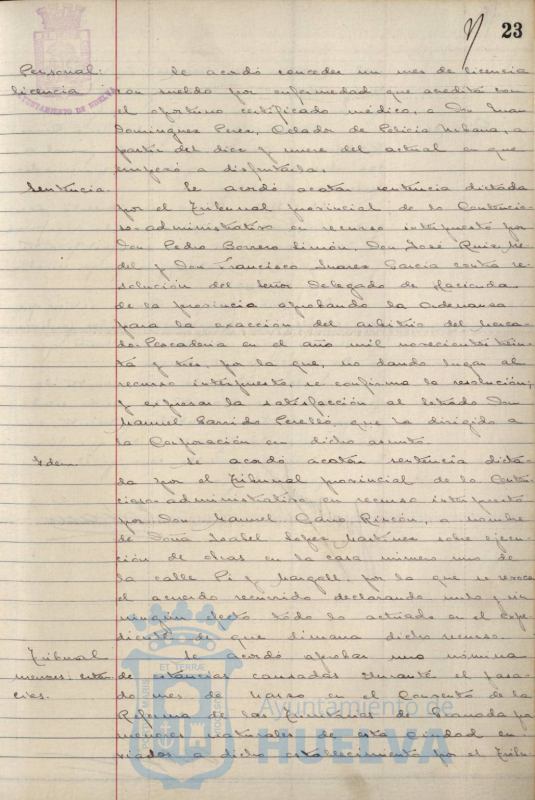 23
Personal:
licencia
Se acordó conceder un mes de licencia
con sueldo por enfermedad que acreditó con
el oportuno certificado médico, a Don Juan
Dominguez Perez, Celador de Policía Urbana, a
partir del dice y nueve del actual en que
empezó a disfrutarla.
Sentencia.
Se acordó acatar sentencia dictada
por el Tribunal provincial de lo Contencio-
so-administrativo en recurso interpuesto por
Don Pedro Borrero Limón, Don José Ruiz
y Don Francisco Suarez Garcia contra re-
solución del Señor Delegado de Hacienda
de la provincia aprobando la Ordenanza
para la exacción del arbitrio del Merca-
do Pescaderia en el año mil novecientos trein-
ta y tres, por la que, no dando lugar al
recurso interpuesto, se confirma la resolución;
y expresar la satisfacción al letrado Don
Manuel Garrido Perelló, que ha dirigido a
la Corporación en dicho asunto.
Idem.
Se acordó acatar sentencia dicta-
da por el Tribunal provincial de lo Conten-
cioso-administrativo en recurso interpuesto
por Don Manuel Cano Rincón, a nombre
de Doña Isabel López Martinez sobre ejecu-
ción de obras en la casa número uno de
la calle Pi y Margall, por la que se revoca
el acuerdo recurrido declarando nulo y sin
ningún efecto todo lo actuado en el expe-
diente de que dimana dicho recurso.
Tribunal
menores: estan-
cias.
Se acordó aprobar una nómina
de estancias causadas durante el pasa-
do mes de Marzo en el Convento de la
Reforma de las Trinitarias de Granada por
menores naturales de esta Ciudad en-
viados a dicho establecimiento por el Tribu-
AYUNTAMIENTO DE HUELVA
Ayuntamiento de
HUELVA